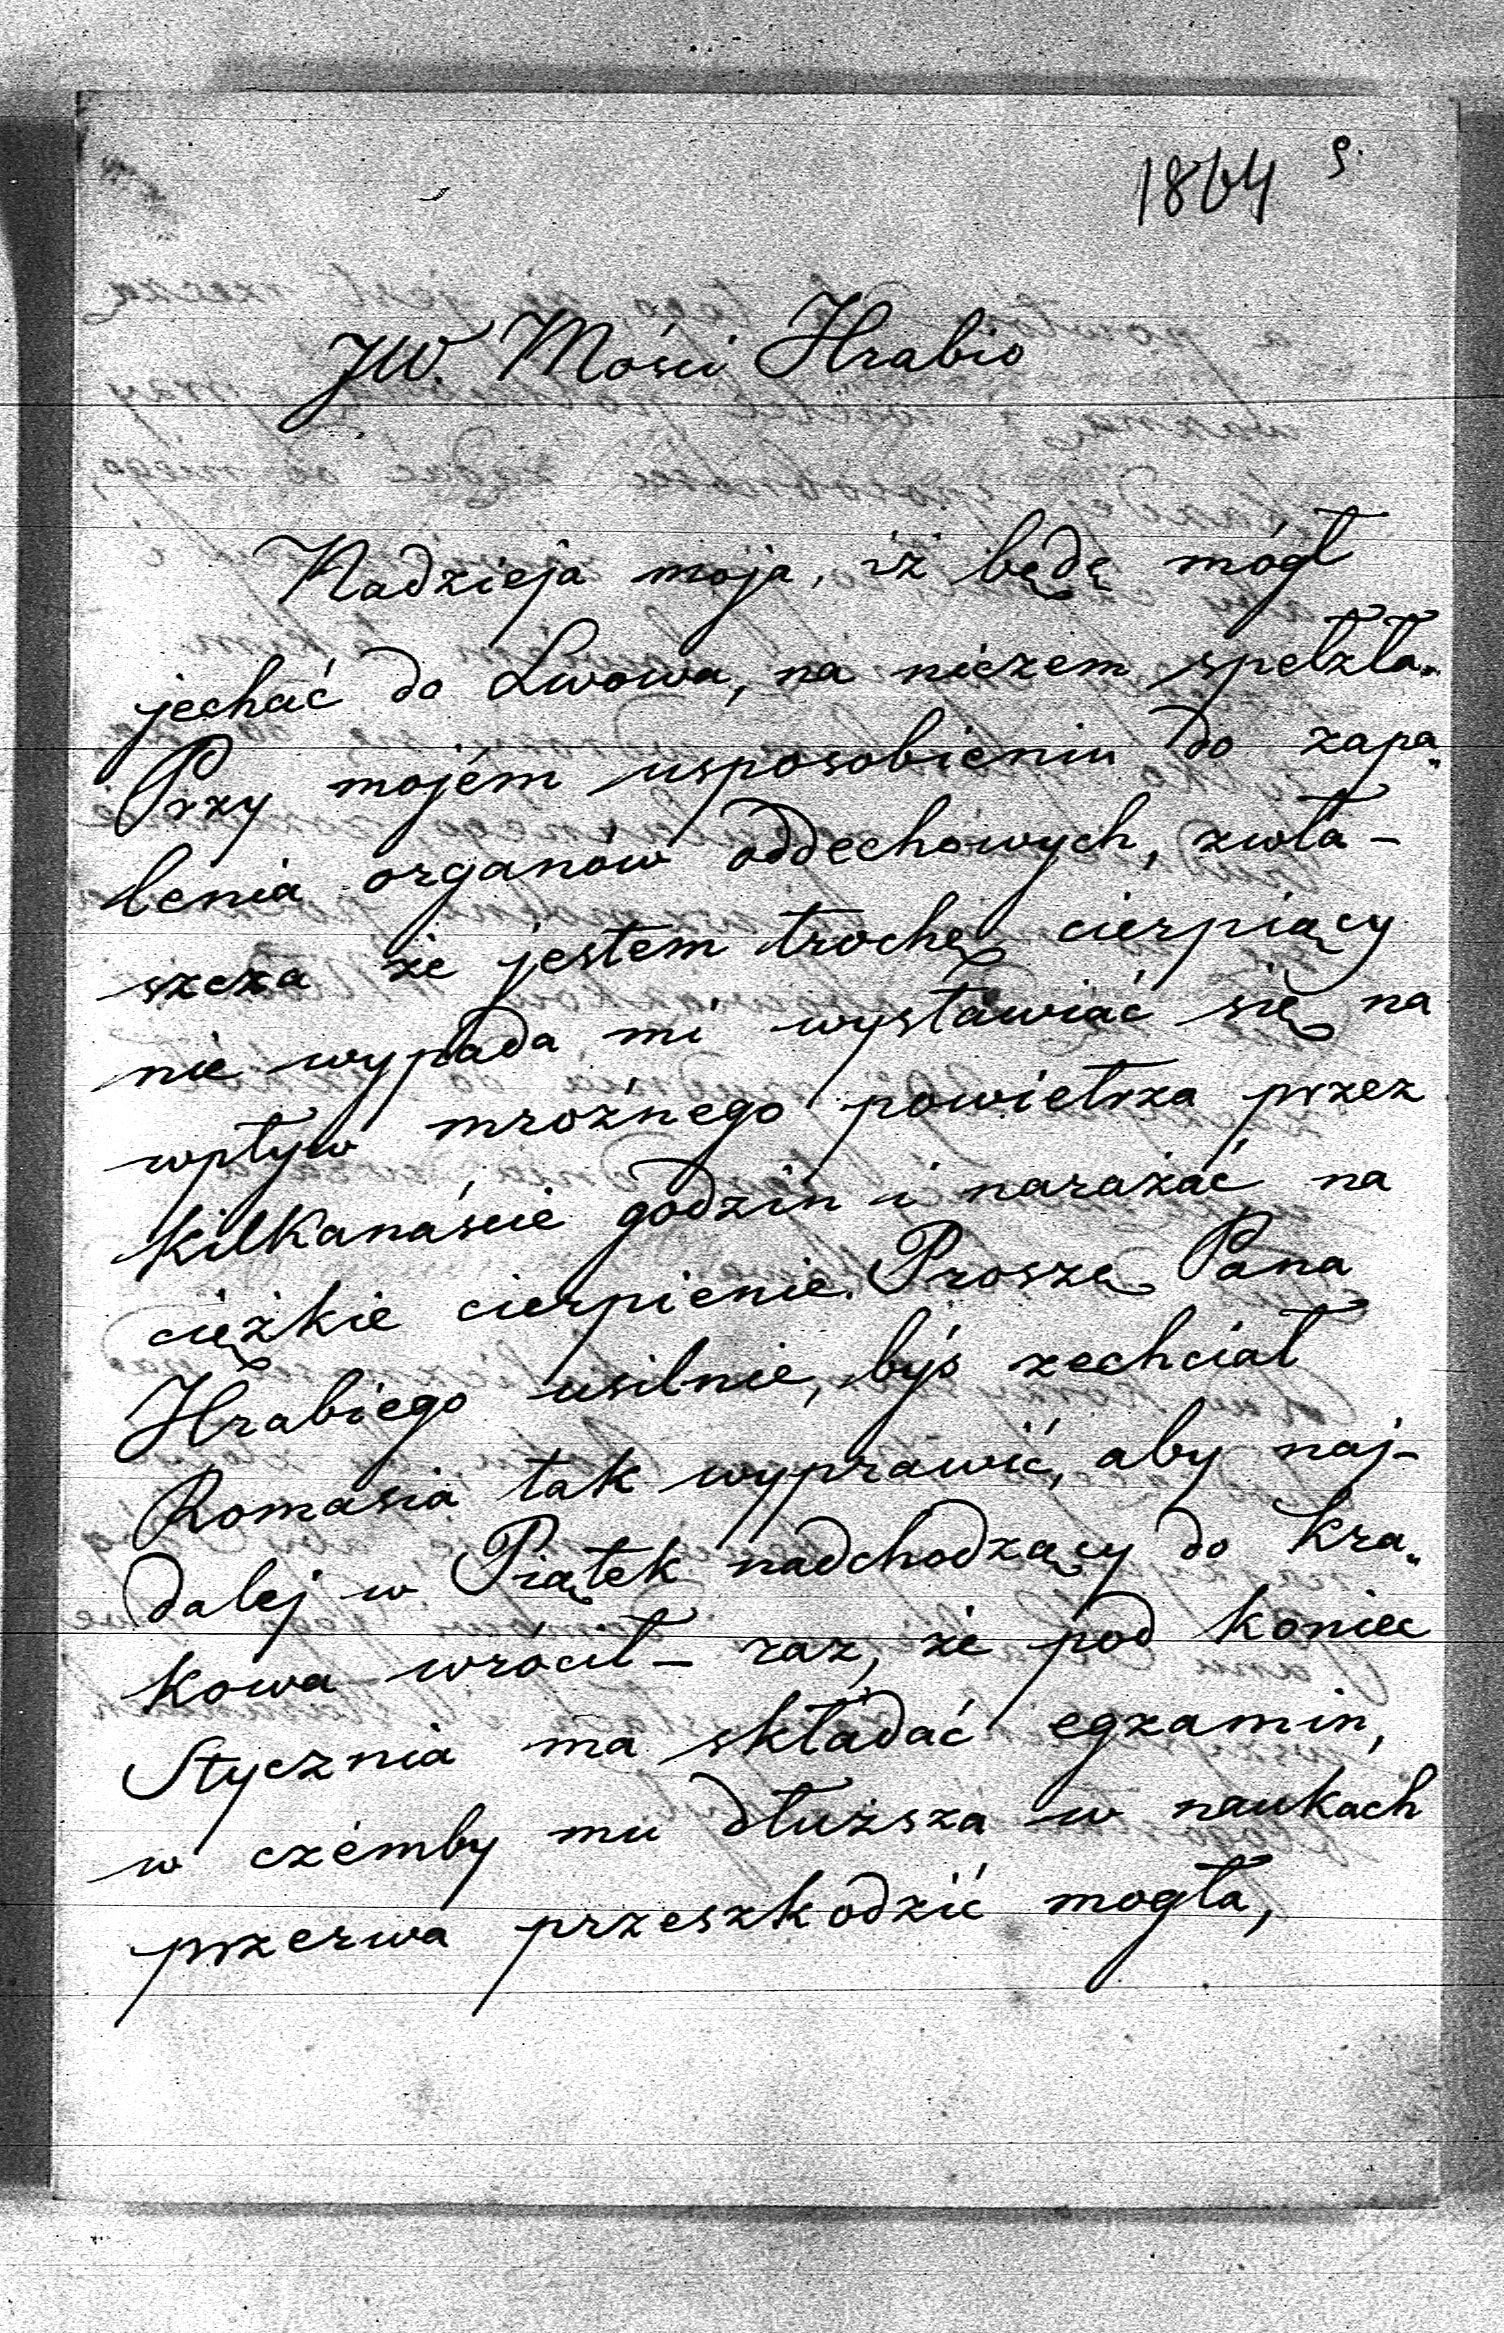 1864 9.
JW. Mości Hrabio
Nadzieja moja, iż będę mógł
jechać do Lwowa, na niczem spełzła.
Przy mojém usposobieniu do zapa„
lenia organów oddechowych, zwła-
szcza że jestem trochę cierpiący
nie wypada mi wystawiać się na
wpływ mroźnego powietrza przez
kilkanaście godzin i narażać na
ciężkie cierpienie. Proszę Pana
Hrabiego usilnie, byś zechciał
Romasia tak wyprawić, aby naj-
dalej w Piątek nadchodzący do Kra„
kowa wrócił – raz, że pod koniec
Stycznia ma składać egzamin,
w czémby mu dłuższa w naukach
przerwa przeszkodzić mogła,